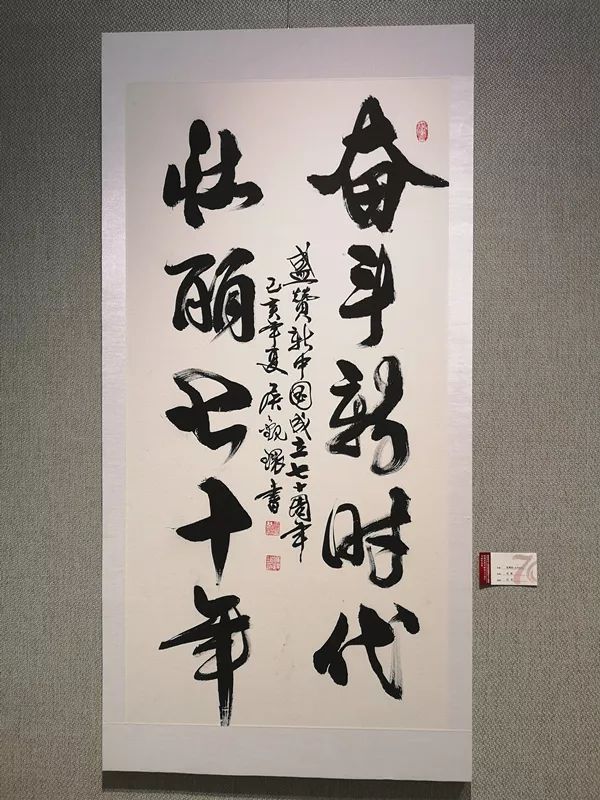 奋斗新时代
盛赞新中国成立七十周年
己亥年夏 侯 書
壮丽七十年
70